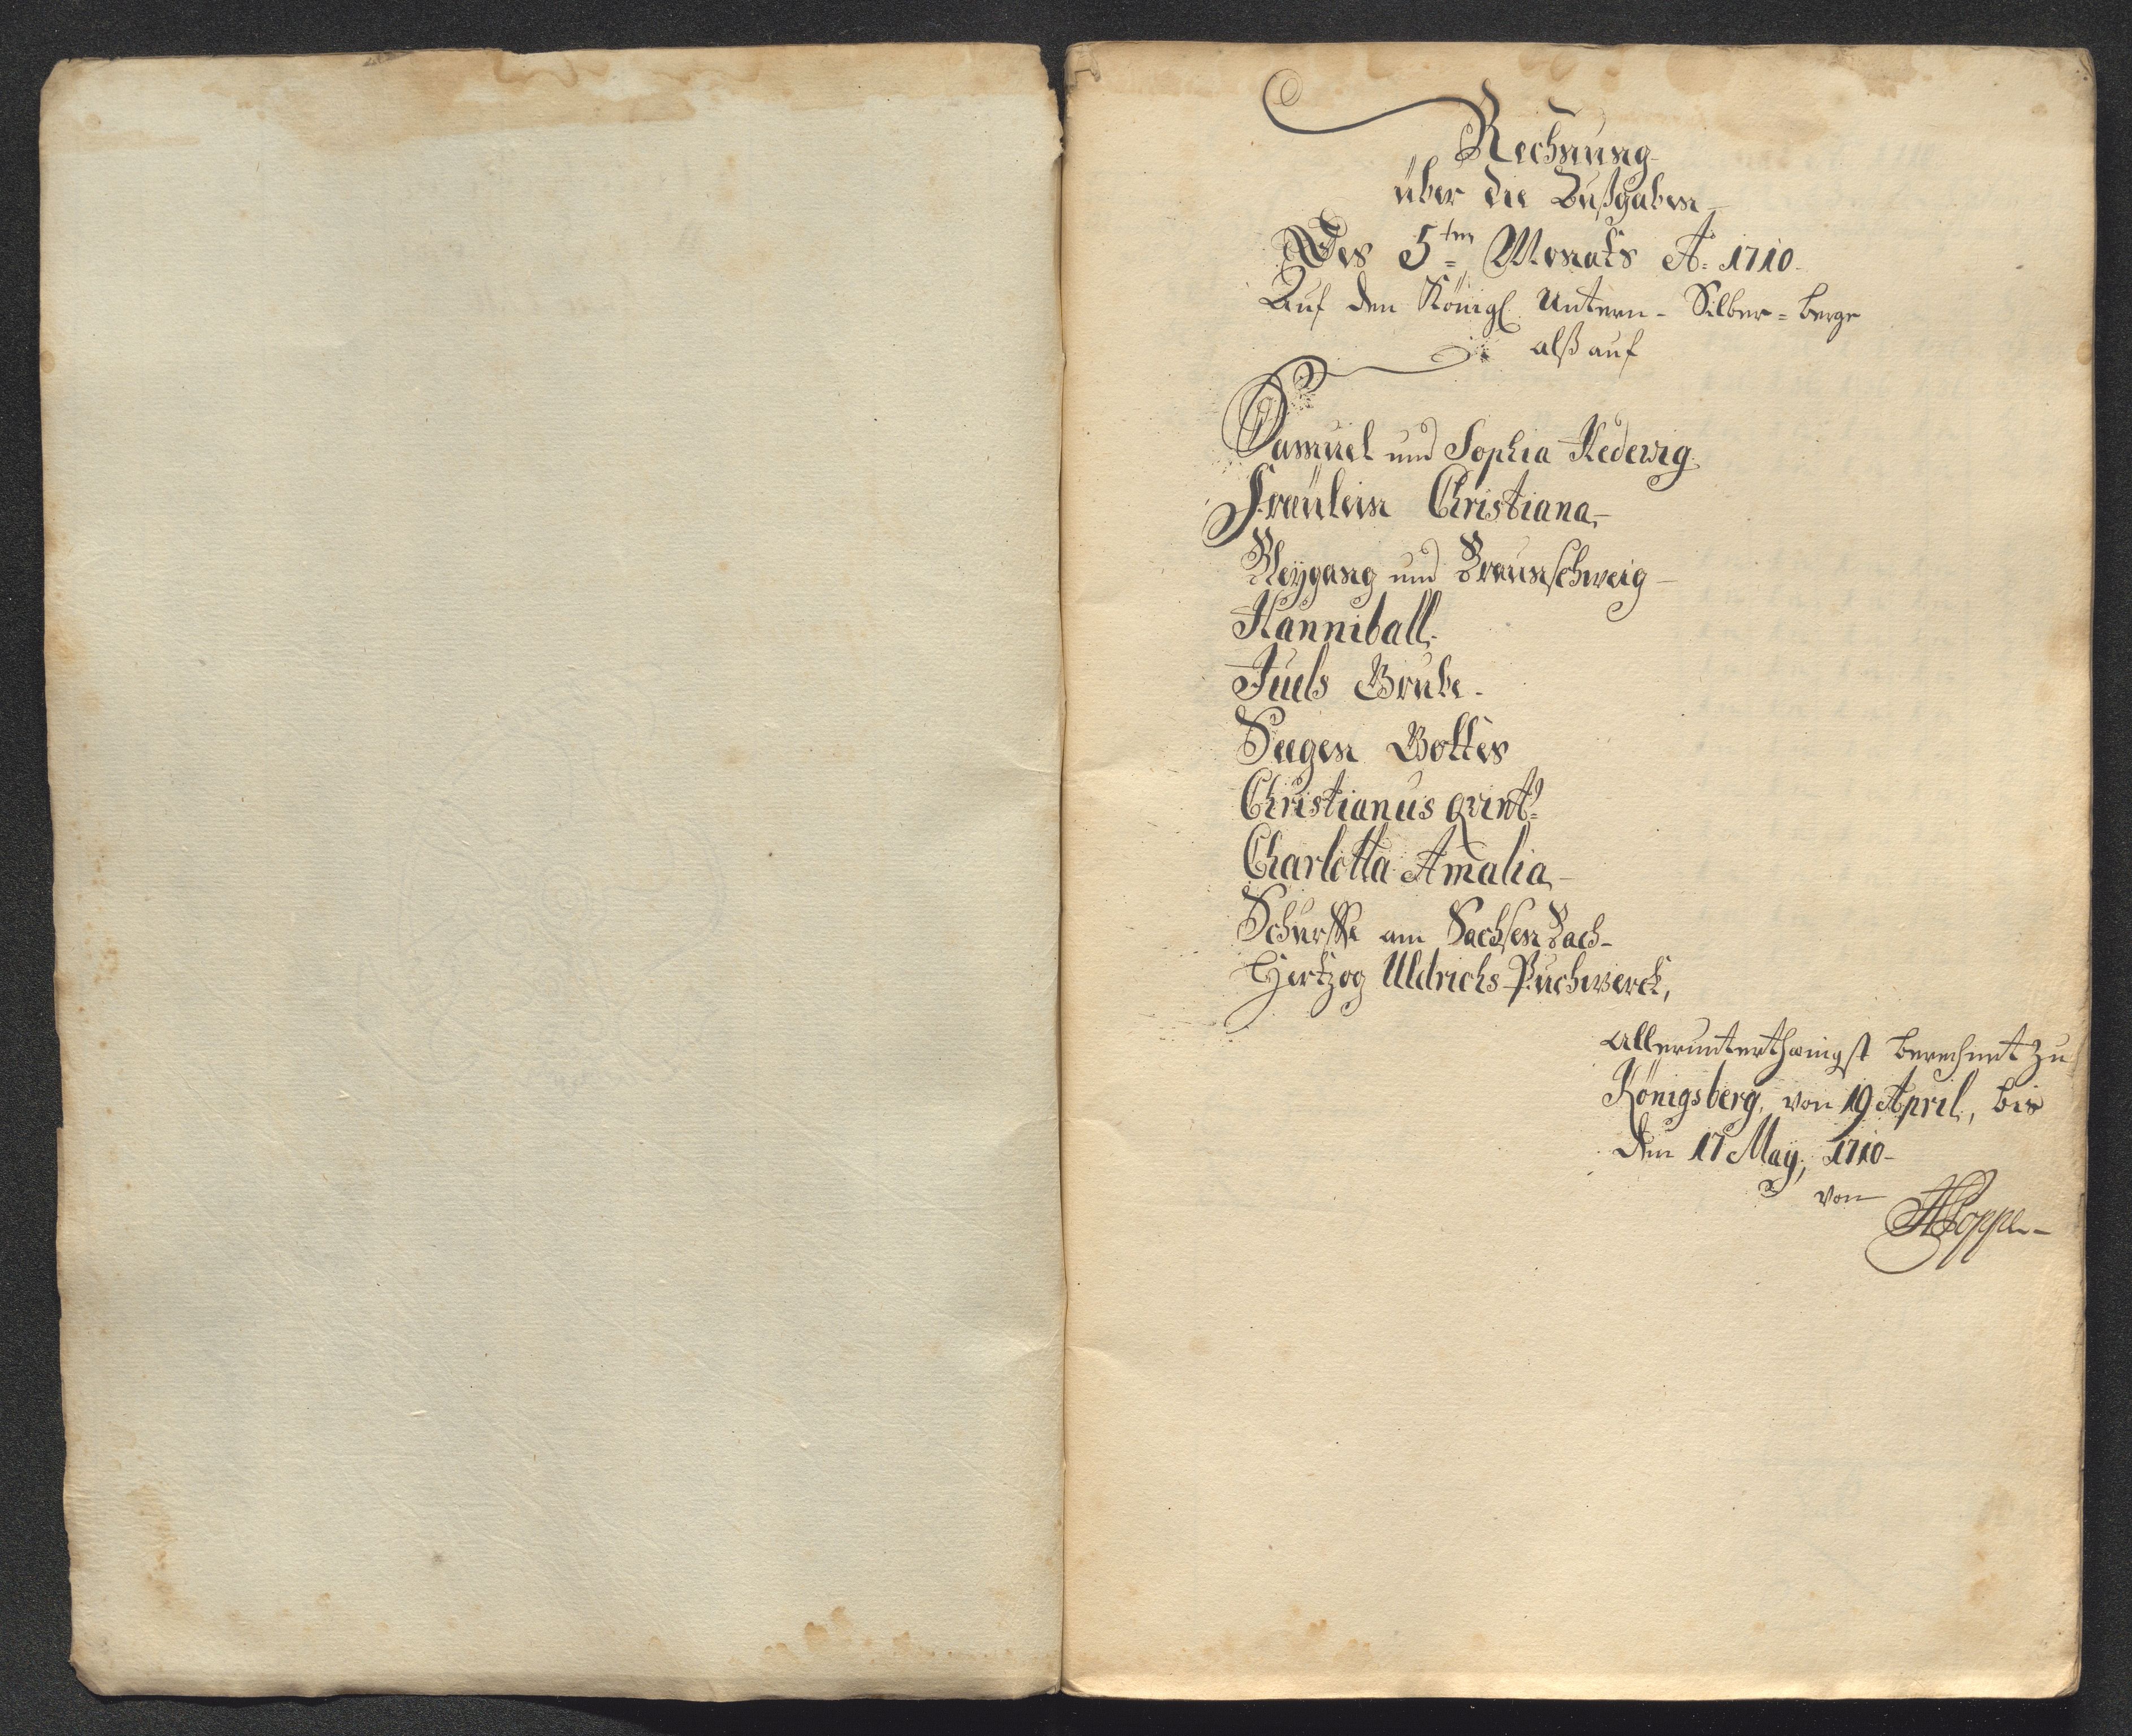 Rechnung
über die Außgaben
Des 5ten Monats Ao. 1710.
Auf den Königl. Untern-Silber-berge
alß auf
Samuel und Sophia Hedewig
Fräulein Christiana,
Bleygang und Braunschweig
Hanniball.
Juels Grube.
Seegen Gottes
Christianus qvint9
Charlotta Amalia,
Schürffe am SachsenBach-
Hertzog Uldrichs Puchwerck,
Allerunterthänigst berechnet zu
Königsberg, von 19 April, bis
den 17 May, 1710.
von
HPoppe